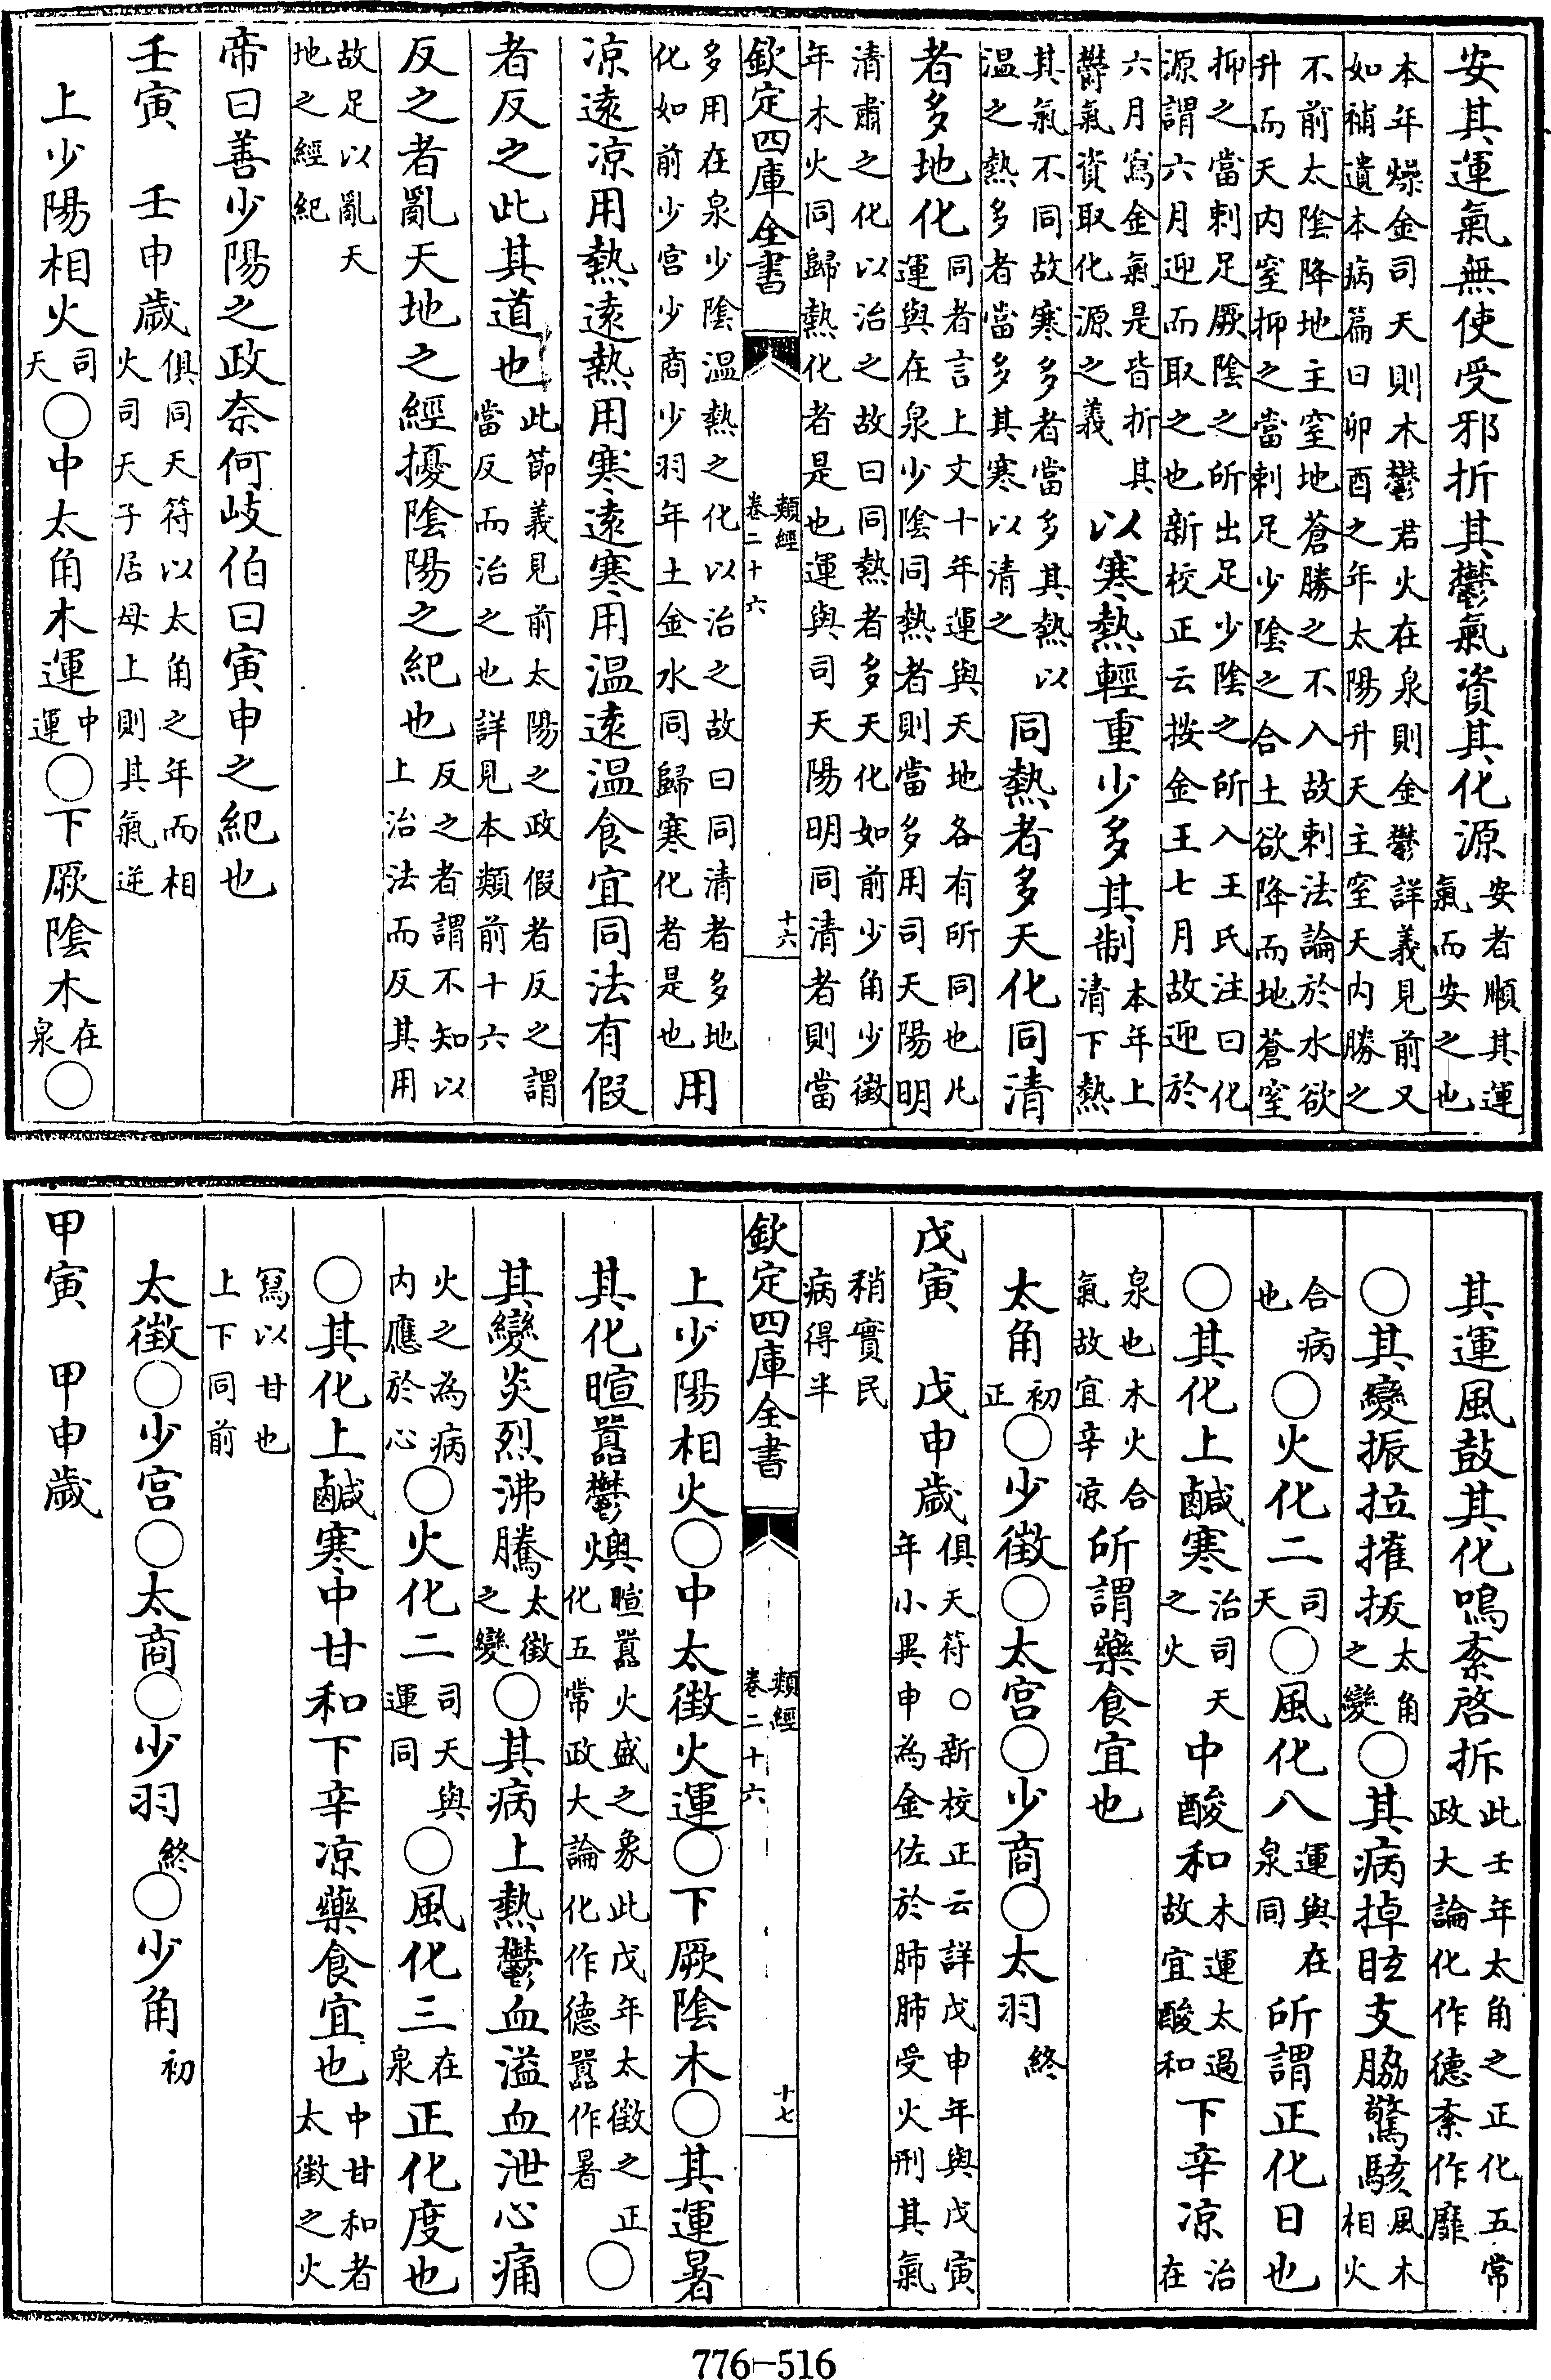 安其運氣無使受邪折其鬱氣資其化源安者順其運氣而安之也
本年燥金司天則木鬱君火在泉則金鬱詳義見前又如補遺本病篇曰卯酉之年太陽升天主窒天內勝之
不前太陰降地主窒地蒼勝之不入故刺法論於水欲升而天内窒抑之當刺足少陰之合土欲降而地蒼窒
抑之當刺足厥陰之所出足少陰之所入王氏注曰化源謂六月迎而取之也新校正云按金王七月故迎於
六月寫金氣是皆折其鬱氣資取化源之義以寒熱輕重少多其制本年上清下熱
其氣不同故寒多者當多其熱以温之熱多者當多其寒以清之同熱者多天化同清
者多地化同者言上文十年運與天地各有所同也凡運與在泉少陰同熱者則當多用司天陽明
清肅之化以治之故曰同熱者多天化如前少角少徵年木火同歸熱化者是也運與司天陽明同清者則當
欽定四庫全書 類經 卷二十六 十六
多用在泉少陰温熱之化以治之故曰同清者多地化如前少宫少商少羽年土金水同歸寒化者是也用
凉遠凉用熱遠熱用寒遠寒用温遠温食宜同法有假
者反之此其道也此節義見前太陽之政假者反之謂當反而治之也詳見本類前十六
反之者亂天地之經擾陰陽之紀也反之者謂不知以上治法而反其用
故足以亂天地之經紀
帝曰善少陽之政奈何岐伯曰寅申之紀也
壬寅 壬申歲俱同天符以太角之年而相火司天子居母上則其氣逆
上少陽相火司天○中太角木運中運○下厥陰木在泉○
其運風鼓其化鳴紊啓拆此壬年太角之正化五常政大論化作德紊作靡
○其變振拉摧拔太角之變○其病掉眩支脇驚駭風木相火
合病也○火化二司天○風化八運與在泉同所謂正化日也
○其化上鹹寒治司天之火中酸和木運太過故宜酸和下辛凉治在
泉也木火合氣故宜辛凉所謂藥食宜也
太角初正○少徵○太宫○少商○太羽終
戊寅 戊申歲俱天符○新校正云詳戊申年與戊寅年小異申為金佐於肺肺受火刑其氣
稍實民病得半
欽定四庫全書 類經 卷二十六 十七
上少陽相火○中太徵火運○下厥陰木○其運暑
其化暄囂鬱燠暄囂火盛之象此戊年太徵之正化五常政大論化作德囂作暑○
其變炎烈沸騰太徵之變○其病上熱鬱血溢血泄心痛
火之為病内應於心○火化二司天與運同○風化三在泉正化度也
○其化上鹹寒中甘和下辛凉藥食宜也中甘和者太徵之火
寫以甘也上下同前
太徵○少宫○太商○少羽終○少角初
甲寅 甲申歲
776-516